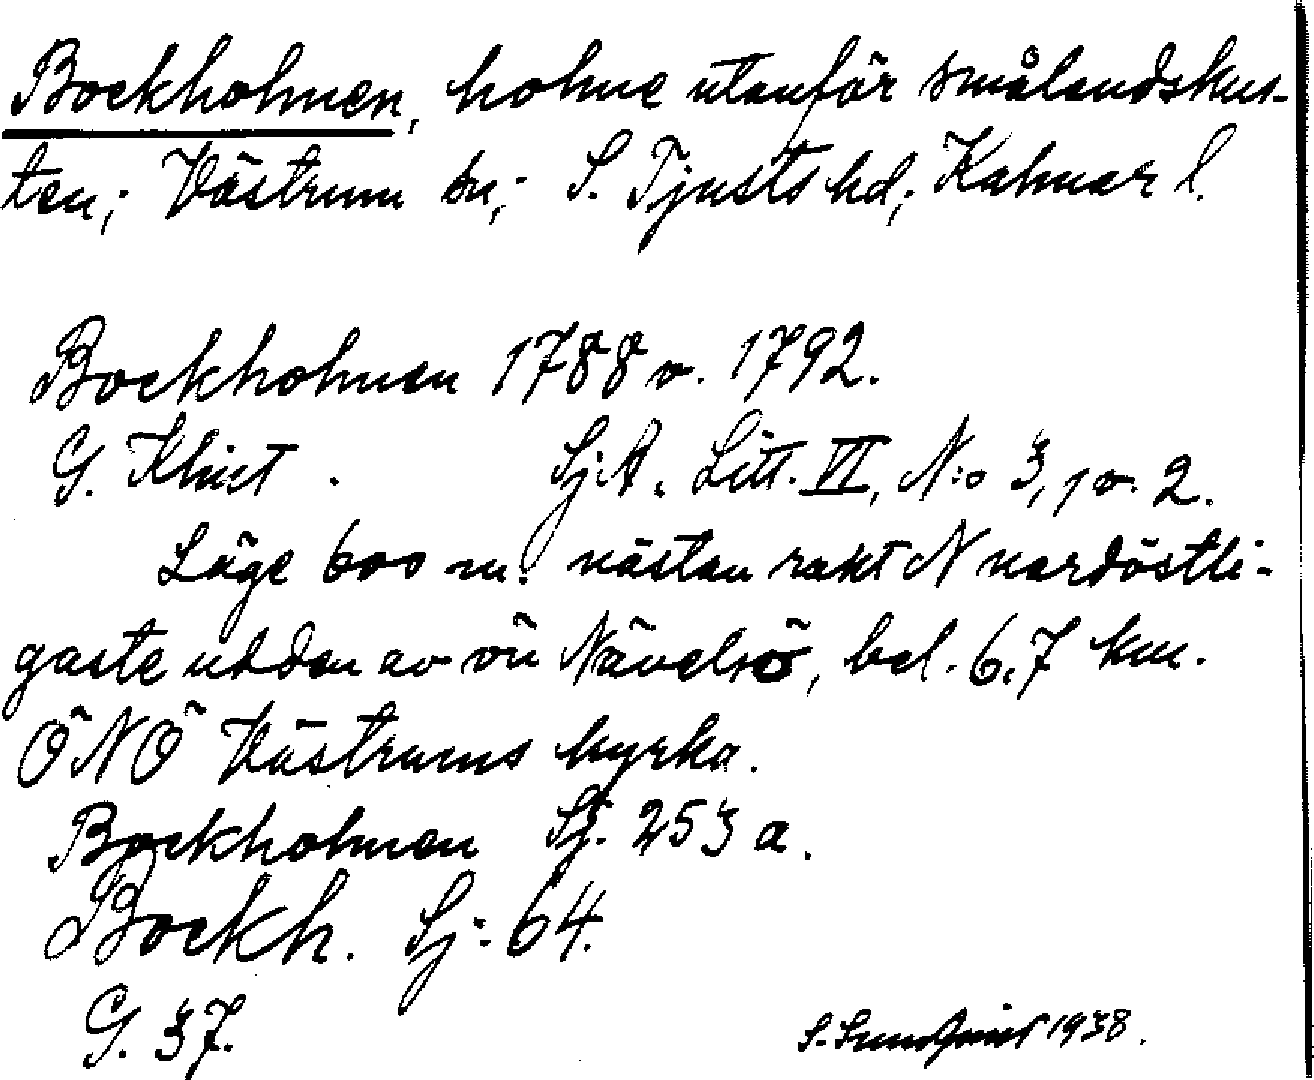 Bockholmen, holme utanför smålandskus-
ten; Västrum sn; S. Tjusts hd; Kalmar l.
Bockholmen 1788 o. 1792.
G. Klint. Sj.A. Litt. VI, N:o 3, 1 o. 2.
Läge 600 m. nästan rakt N nordöstli-
gaste udden av ön Nävelsö, bel. 6,7 km.
ÖNÖ Västrums kyrka.
Bockholmen Sj. 253 a.
Bockh. Sj. 64.
G. 37.
S. Sundqvist 1938.